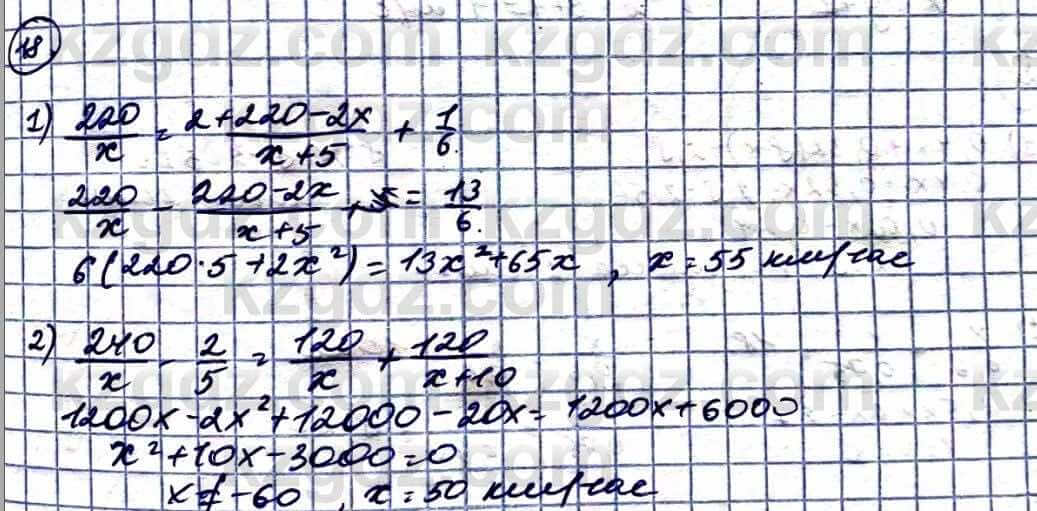 18
1) 220/x = 2 + 220-2x/x+5 + 1/6.
220/x - 220-2x/x+5 = 13/6.
6(220·5+2x²) = 13x²+65x, x=55 км/час
2) 240/x - 2/5 = 120/x + 120/x+10
1200x-2x²+12000-20x=1200x+6000
x²+10x-3000=0
x≠-60, x=50 км/час
kzgdz.com kzgdz.com